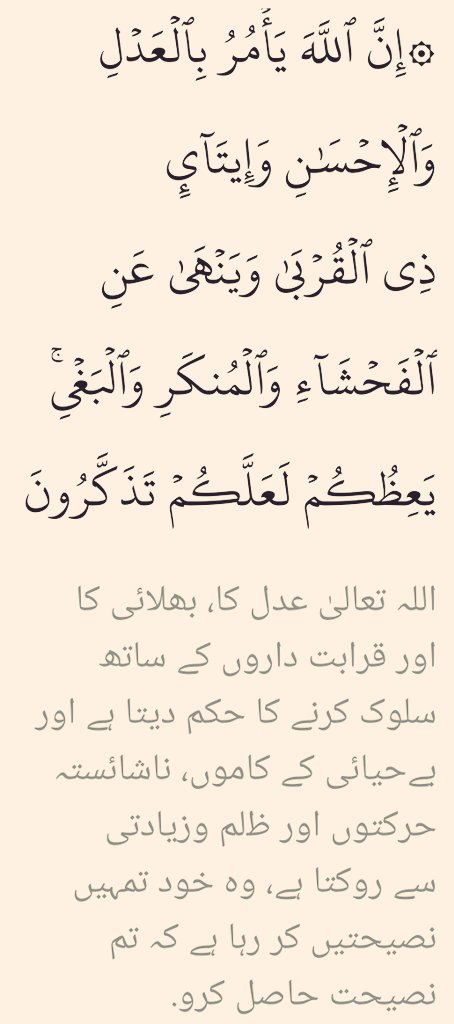 ۞إِنَّ ٱللَّهَ يَأۡمُرُ بِٱلۡعَدۡلِ
وَٱلۡإِحۡسَٰنِ وَإِيتَآيِٕ
ذِي ٱلۡقُرۡبَىٰ وَيَنۡهَىٰ عَنِ
ٱلۡفَحۡشَآءِ وَٱلۡمُنكَرِ وَٱلۡبَغۡيِۚ
يَعِظُكُمۡ لَعَلَّكُمۡ تَذَكَّرُونَ
اللہ تعالیٰ عدل کا، بھلائی کا
اور قرابت داروں کے ساتھ
سلوک کرنے کا حکم دیتا ہے اور
بےحیائی کے کاموں، ناشائستہ
حرکتوں اور ظلم وزیادتی
سے روکتا ہے، وه خود تمہیں
نصیحتیں کر رہا ہے کہ تم
نصیحت حاصل کرو.